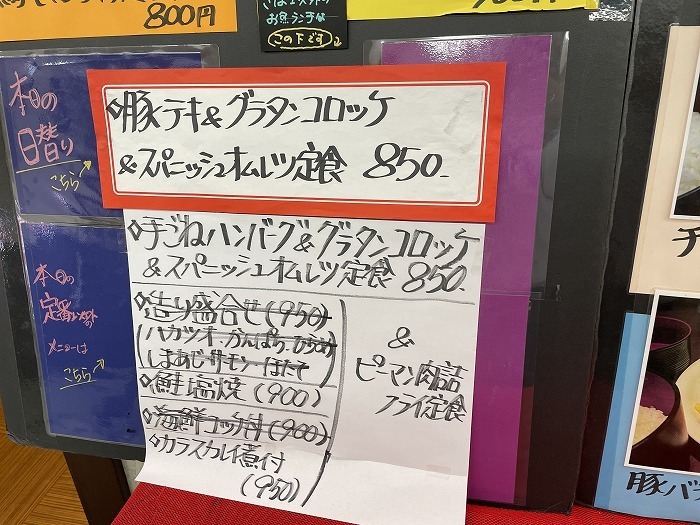 800円
この下です
本日の
日替り
こちら
◇豚テキ&グラタンコロッケ
&スパニッシュオムレツ定食 850-
◇手ごねハンバーグ&グラタンコロッケ
&スパニッシュオムレツ定食 850-
◇造り盛合せ(950)
しまあじ・サーモン・ほたて
◇鮭塩焼(900)
◇海鮮コッ丼(900)
◇カラスカレイ煮付
(950)
&
ピーマン肉詰
フライ定食
本日の
定番
メニューは
こちら
チ
豚バラ